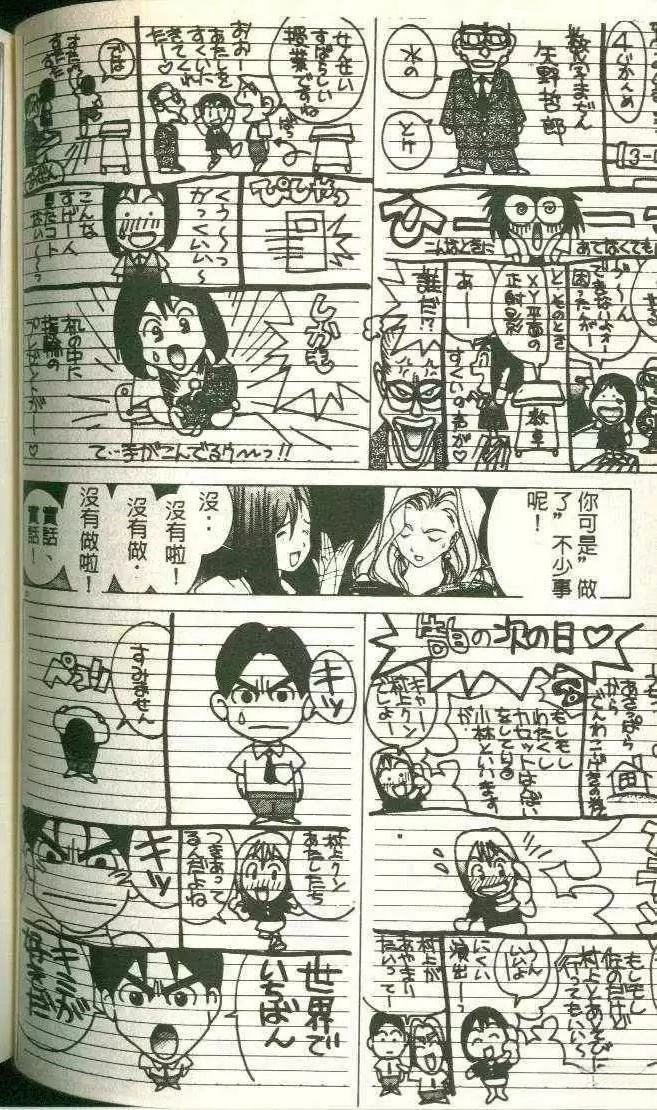 4じかんめ
数学まだん
矢野哲郎
水の
とけ
こんなときに
あてなくても
できないよォー
困ったがー
とゝのとき
XY平面の
正射影
あー
すくいの者が♡
教卓
誰だ!?
せんせい
すばらしい
授業ですね
おおー
あたしを
すくいに
きてくれ
たー♡
では
すたすた
くうーっ
かっくいい〜
こんな
すげー人
見たコト
ないーっ
しかも
机の中に
指輪の
プレゼントがー♡
て…手がこんでるゥ〜〜っ!!
你可是”做
了”不少事
呢！
沒‥
沒有啦！
沒有做．
沒有做啦！
實話、
實話！
の次の日♡
あさっぱら
から
でんわこうげきの我が
もしもし
わたくし
カセットはんばい
をしてりる
小林といいます
が‥
キャー
村上クン
でしょー
もしもし
なのだけど
村上とあそびに
行ってもいい〜
うん
いいよ
にくい
演出ーっ
村上が
あやまり
たいってー
キッ
すみません
ペコリ
村上クン
あたしたち
つきあって
るんだよね
キッ
世界で
いちばん
キミが
好きだ